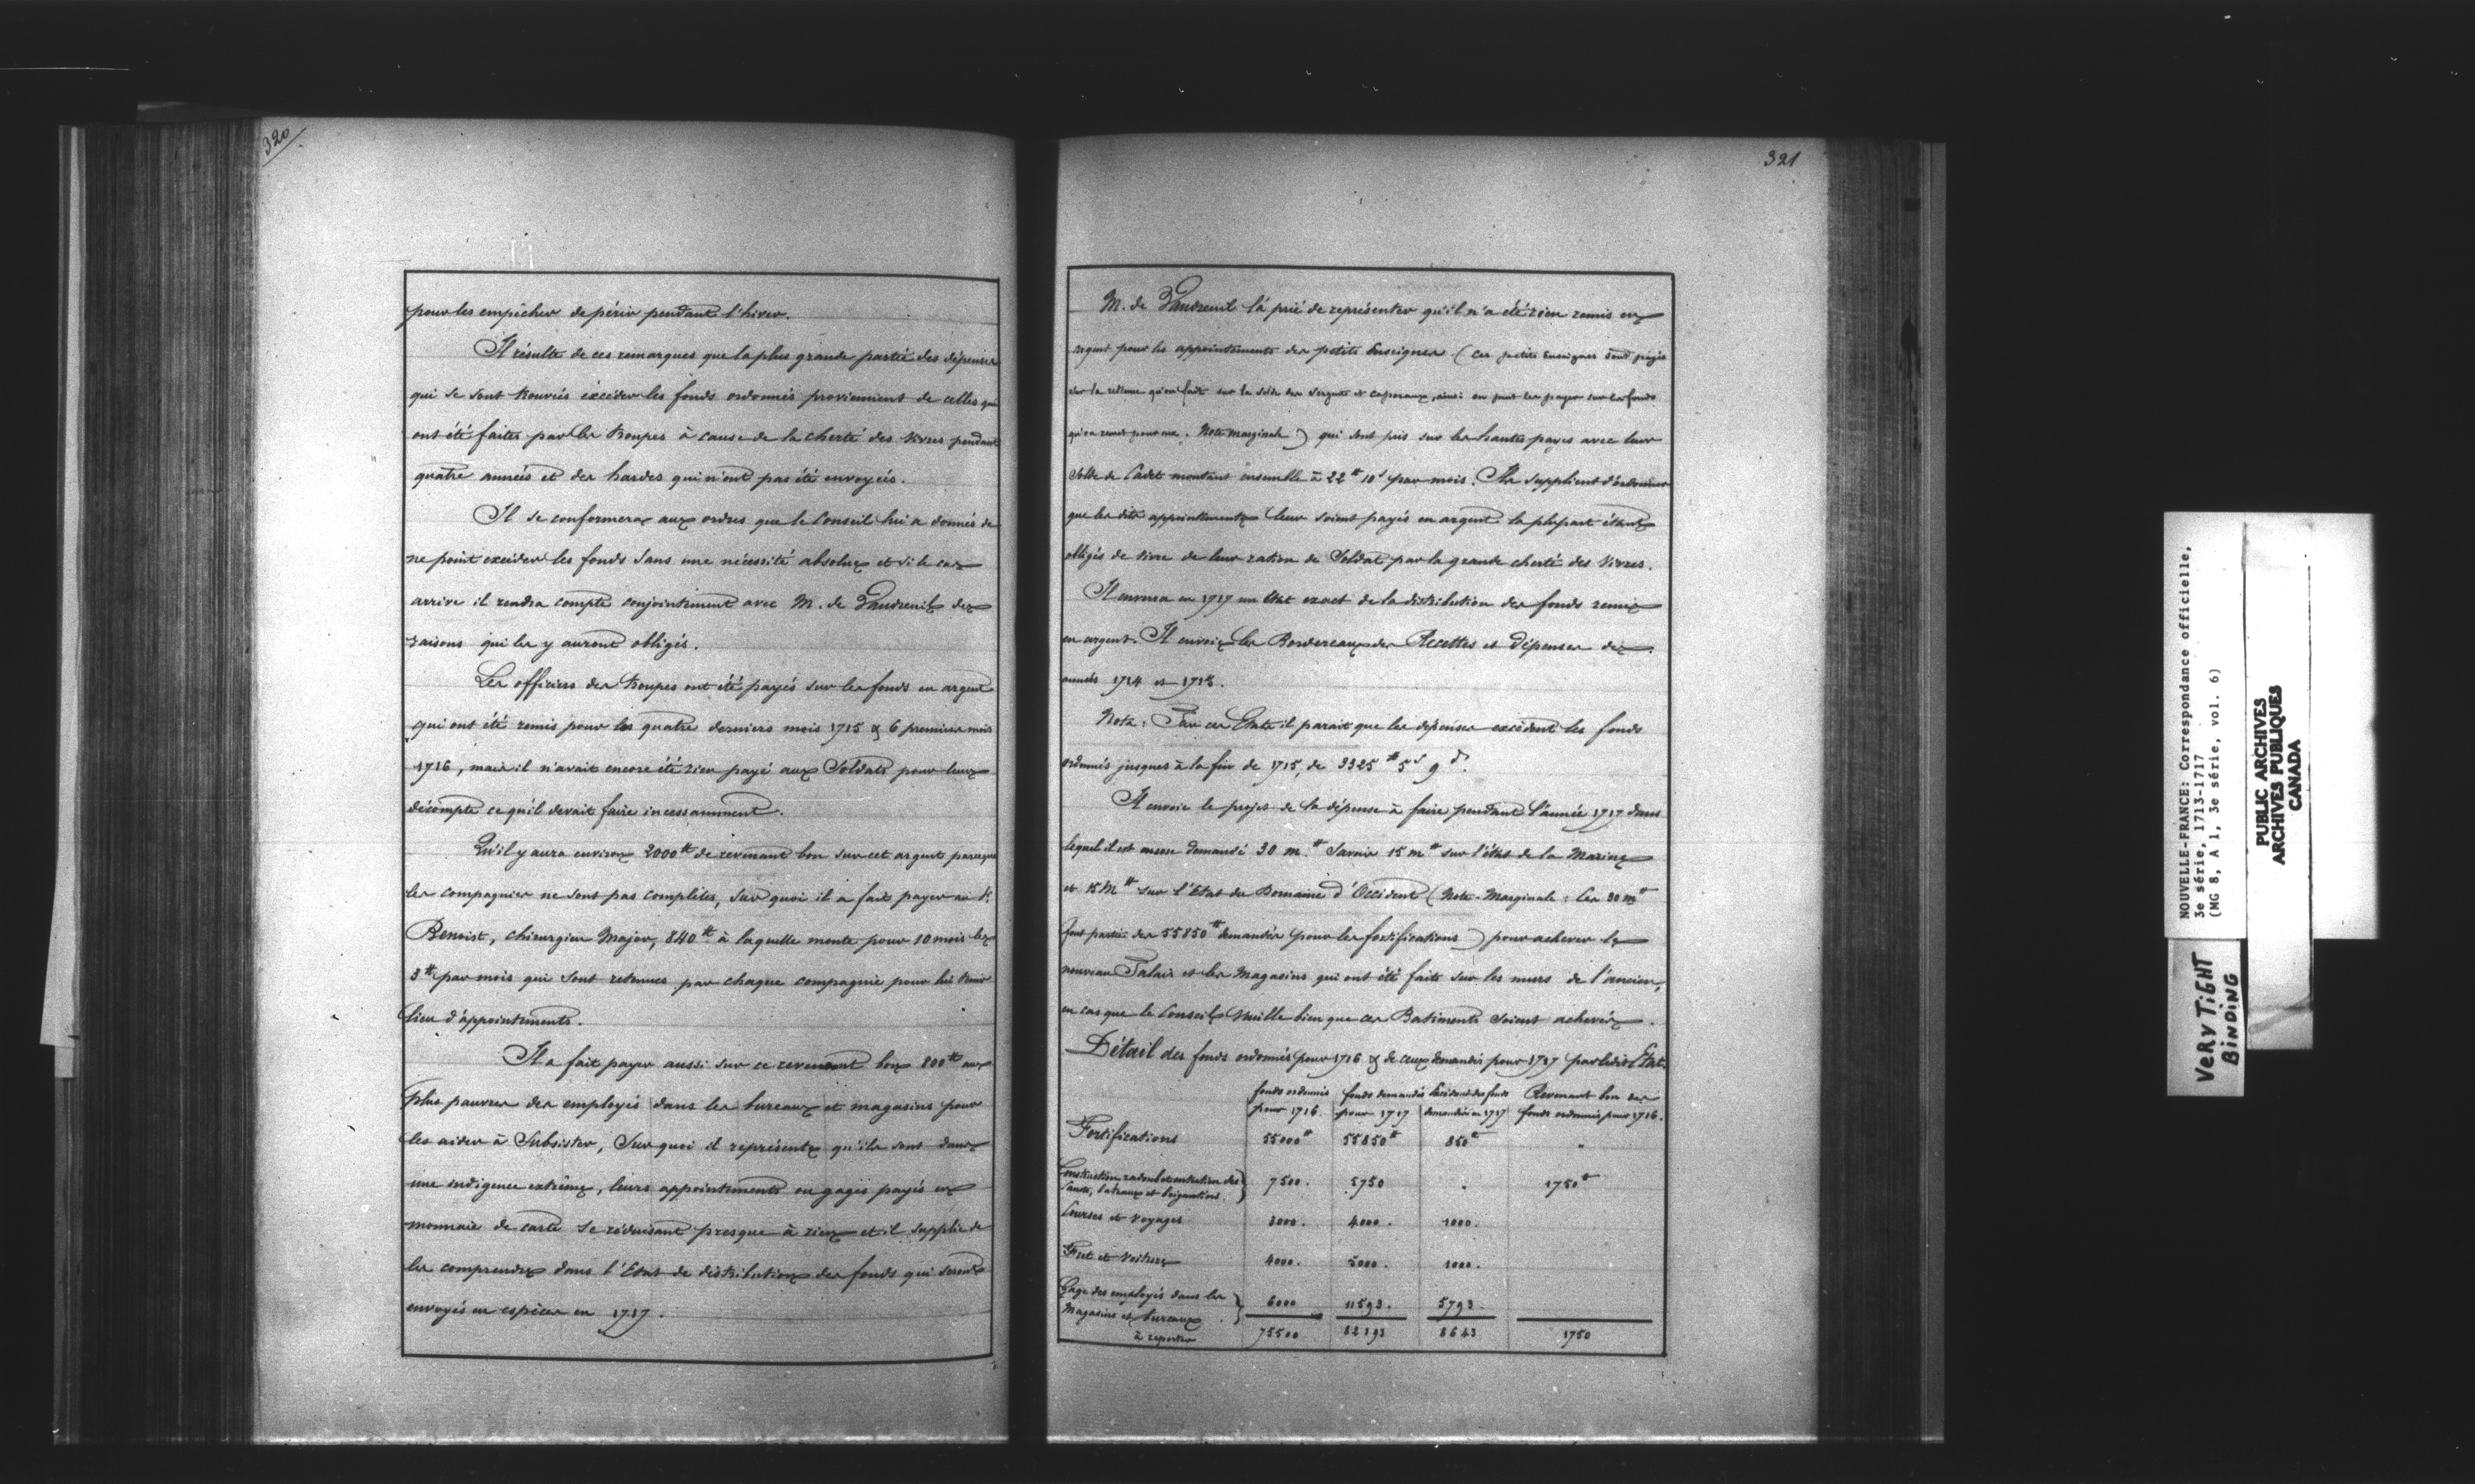 320
pour les empêcher de périr pendant l'hiver.
Il résulte de ces remarques que la plus grande partie des dépenses
qui se sont trouvées excéder les fonds ordonnés proviennent de celles qui
ont été faites par les troupes à cause de la cherté des vivres pendant
quatre années et des hardes qui n'ont pas été envoyées.
Il se conformera aux ordres que le Conseil lui a donnés de
ne point excéder les fonds sans une nécessité absolue et si le cas
arrive il rendra compte conjointement avec M. de Vaudreuil des
raisons qui les y auront obligés.
Les officiers des troupes ont été payés sur les fonds en argent
qui ont été remis pour les quatre derniers mois 1715 & 6 premiers mois
1716, mais il n'avait encore été rien payé aux Soldats pour leur
décompte ce qu'il devait faire incessamment.
Qu'il y aura environ 2000# de revenant bon sur cet argent parceque
les compagnies ne sont pas complètes, sur quoi il a fait payer au Sr
Benoist, chirurgien Major, 840# à laquelle monte pour 10 mois les
3# par mois qui sont retenues par chaque compagnie pour lui tenir
lieu d'appointements.
Il a fait payer aussi sur ce revenant bon 800# aux
plus pauvres des employés dans les bureaux et magasins pour
les aider à Subsister, Sur quoi il représente qu'ils sont dans
une indigence extrême, leurs appointements ou gages payés en
monnaie de carte se réduisant presque à rien et il supplie de
les comprendre dans l'Etat de distribution des fonds qui seront
envoyés en espèces en 1717.
321
M. de Vaudreuil l'a prié de représenter qu'il n'a été rien remis en
argent pour les appointements des petits Enseignes (Ces petits Enseignes sont payés
sur la retenue qu'on fait sur la solde des Sergents et Caporaux, ainsi on peut les payer sur les fonds
qu'on remet pour eux. Note marginale) qui sont pris sur les hautes payes avec leur
Solde de Cadets montant ensemble à 22# 10s par mois. Ils supplient d'ordonner
que les dits appointements leur soient payés en argent la plupart étant
obligés de vivre de leur ration de Soldat par la grande cherté des vivres.
Il enverra en 1717 un Etat exact de la distribution des fonds remis
en argent. Il envoie les Bordereaux des Recettes et dépenses des
années 1714 et 1715.
Nota: Par ces Etats il parait que les dépenses excèdent les fonds
ordonnés jusques à la fin de 1715, de 3325# 5s 9d.
Il envoie le projet de la dépense à faire pendant l'année 1717 dans
lequel il est encore demandé 30 m.# Savoir 15 m# sur l'état de la Marine
et 15 M# sur l'Etat du Domaine d'Occident (Note Marginale: Ces 30 m#
font partie des 55850# demandés pour les fortifications) pour achever le
nouveau Palais et les Magasins qui ont été faits sur les murs de l'ancien,
en cas que le Conseil veuille bien que ces Batiments soient achevés.
Détail des fonds ordonnés pour 1716 & de ceux demandés pour 1717 par ledit Etat.
fonds ordonnés fonds demandés Excédent des fonds Revenant bon des
pour 1716. pour 1717 demandés en 1717 fonds ordonnés pour 1716.
Fortifications 55000# 55850# 850# "
Construction radoub et entretien des
Canots, bateaux et brigantins. } 7500. 5750 . 1750#
Courses et voyages 3000. 4000. 1000.
Fret et voitures 4000. 5000. 1000.
Gage des employés dans les
Magasins et bureaux } 6000 11593. 5793.
à reporter 75500 82193 8643 1750
NOUVELLE-FRANCE: Correspondance officielle,
3e série, 1713-1717
(MG 8, A 1, 3e série, vol. 6)
PUBLIC ARCHIVES
ARCHIVES PUBLIQUES
CANADA
VERY TiGHT
BiNDiNG